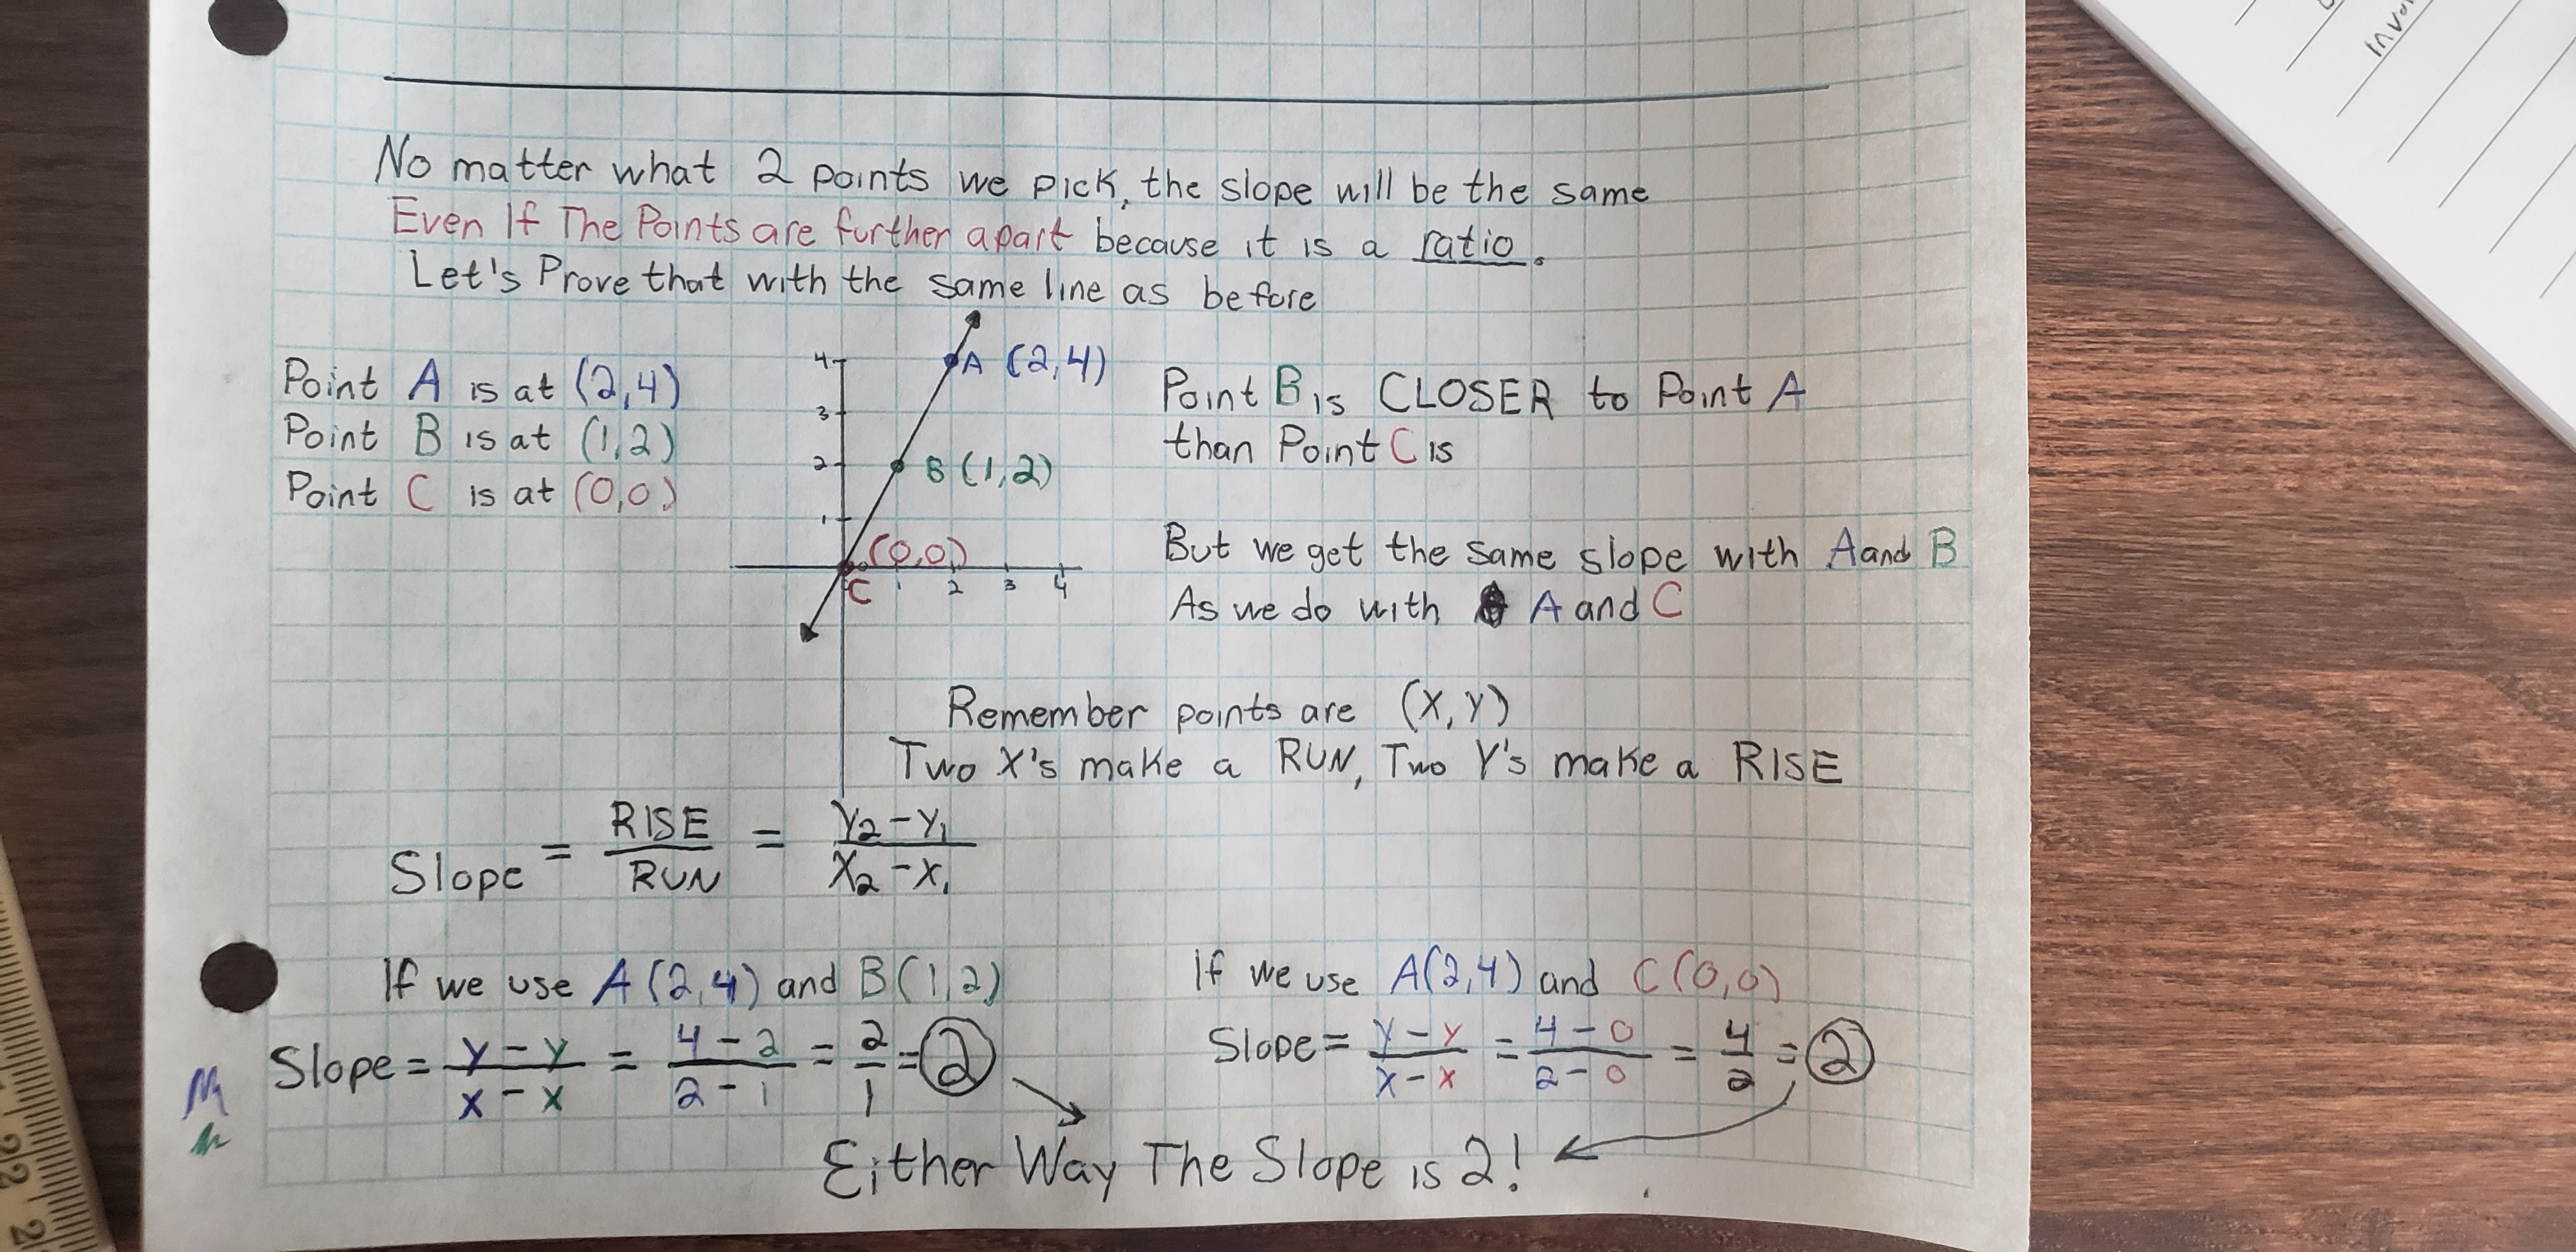 No matter what 2 points we pick, the slope will be the same
Even If The Points are further apart because it is a ratio.
Let's Prove that with the same line as before
Point A is at (2,4)
Point B is at (1,2)
Point C is at (0,0)
4
3
2
1
A (2,4)
B (1,2)
(0,0)
C
1 2 3 4
Point B is CLOSER to Point A
than Point C is
But we get the same slope with A and B
As we do with A and C
Remember points are (X,Y)
Two X's make a RUN, Two Y's make a RISE
Slope = RISE/RUN = Y₂-Y₁/X₂-X₁
If we use A(2,4) and B(1,2)
Slope = y-y/x-x = 4-2/2-1 = 2/1 = 2
If we use A(2,4) and C(0,0)
Slope = y-y/x-x = 4-0/2-0 = 4/2 = 2
Either Way The Slope is 2!
22